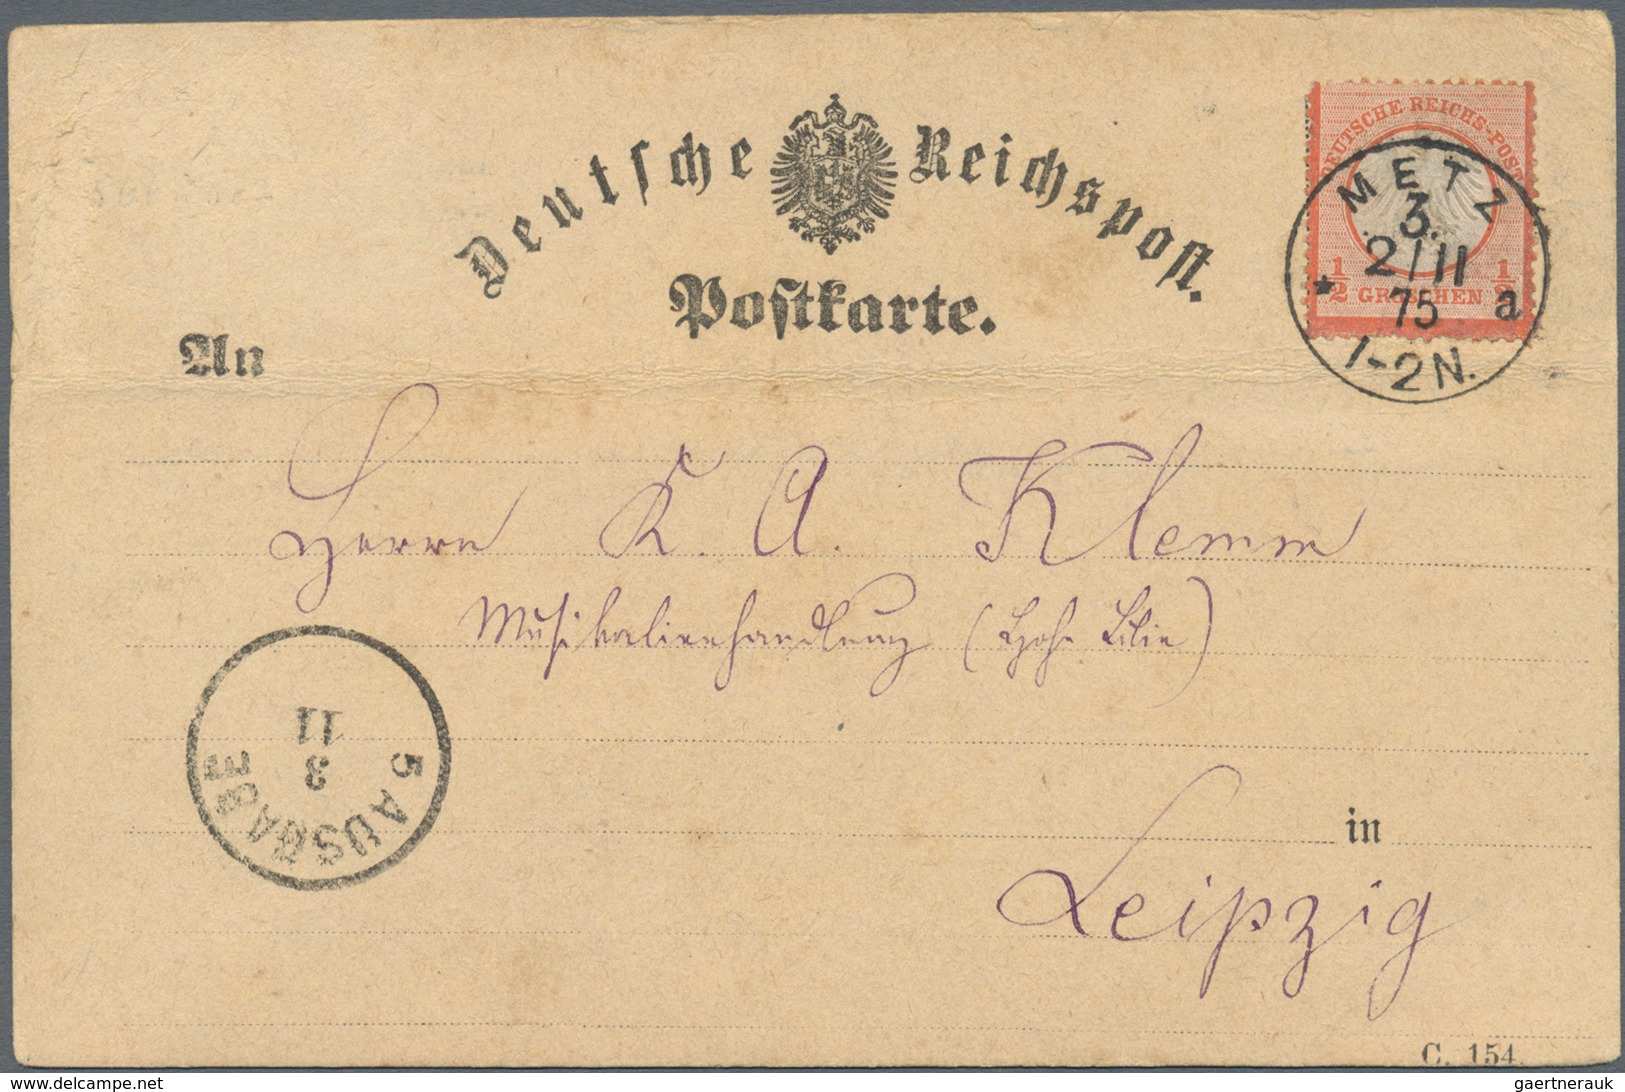 Deutsche Reichspost.
Postkarte.
DEUTSCHE REICHS-POST
1/2 GROSCHEN 1/2
METZ
3.
2/11
75
* a
1-2N.
An
Herrn K. A. Klemm
Musikalienhandlung (Hohe Lilie)
11
3
5 AUSGABE
in
Leipzig
C. 154.
gaertnerauk